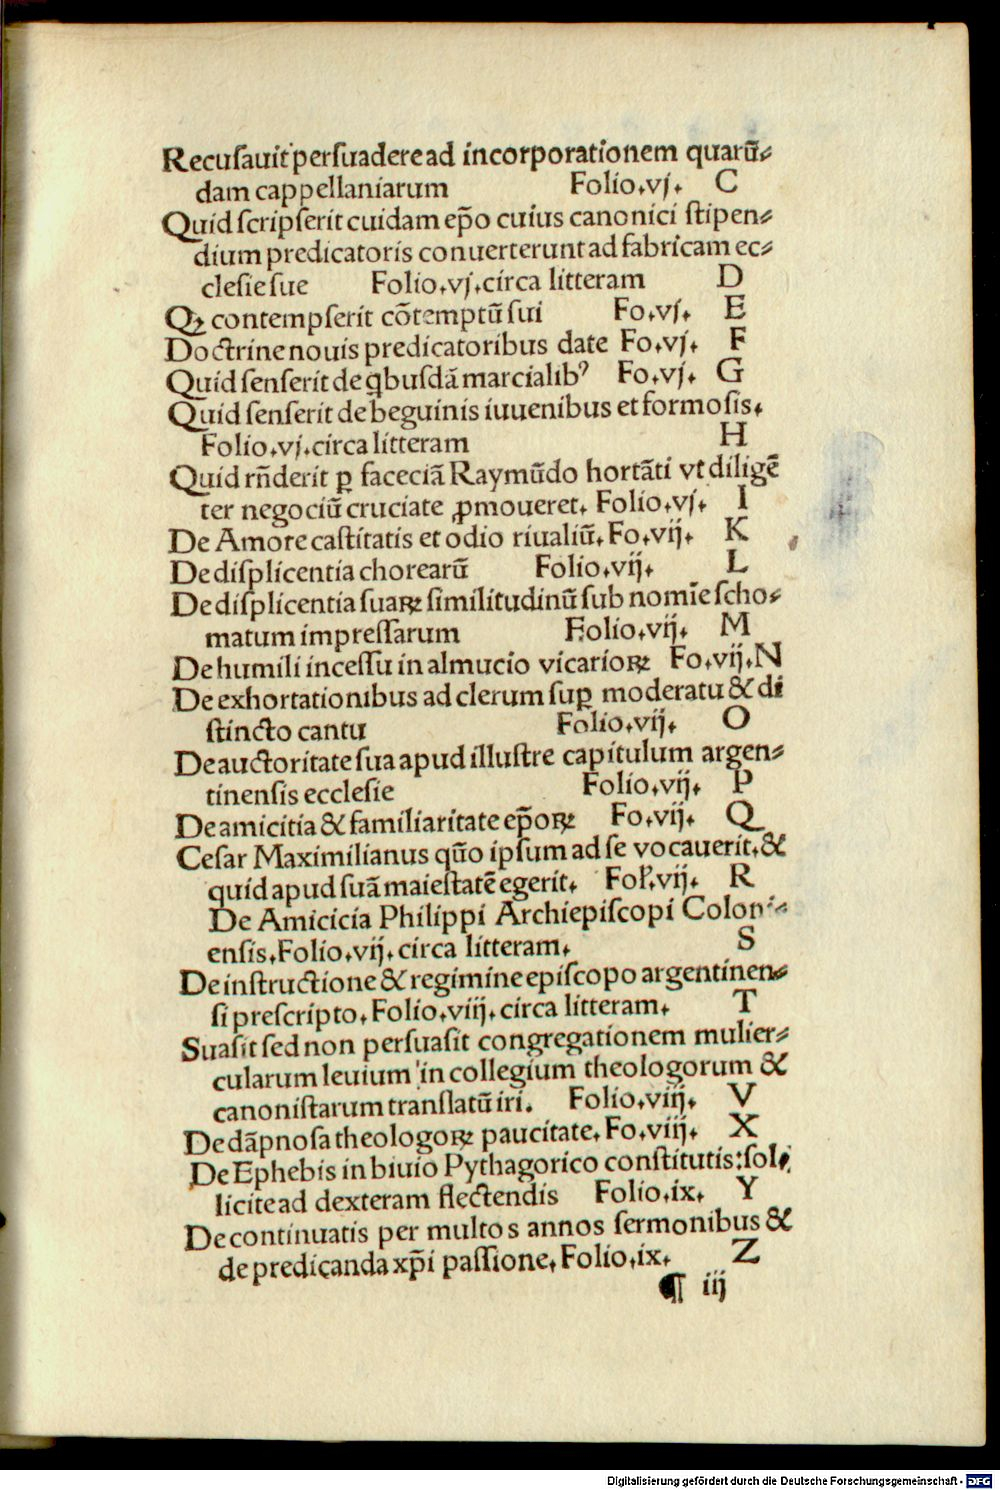 Recusauit persuadere ad incorporationem quarū⸗
dam cappellaniarum Folio.vj. C
Quid scripserit cuidam ep̄o cuius canonici stipen⸗
dium predicatoris conuerterunt ad fabricam ec⸗
clesie sue Folio.vj.circa litteram D
Qꝫ contempserit cōtemptū sui Fo.vj. E
Doctrine nouis predicatoribus date Fo.vj. F
Quid senserit de qbusdā marcialibꝰ Fo.vj. G
Quid senserit de beguinis iuuenibus et formosis.
Folio.vj.circa litteram H
Quid rn̄derit ꝑ faceciā Raymūdo hortāti vt diligē
ter negociū cruciate ꝓmoueret. Folio.vj. I
De Amore castitatis et odio riualiū. Fo.vij. K
De displicentia chorearū Folio.vij. L
De displicentia suaꝝ similitudinū sub nomīe scho⸗
matum impressarum Folio.vij. M
De humili incessu in almucio vicarioꝝ Fo.vij. N
De exhortationibus ad clerum suꝑ moderatu & di
stincto cantu Folio.vij. O
De auctoritate sua apud illustre capitulum argen⸗
tinensis ecclesie Folio.vij. P
De amicitia & familiaritate ep̄oꝝ Fo.vij. Q
Cesar Maximilianus quō ipsum ad se vocauerit.&
quid apud suā maiestatē egerit. Fol.vij. R
De Amicicia Philippi Archiepiscopi Coloni⸗
ensis.Folio.vij.circa litteram. S
De instructione & regimine episcopo argentinen⸗
si prescripto.Folio.viij.circa litteram. T
Suasit sed non persuasit congregationem mulier⸗
cularum leuium in collegium theologorum &
canonistarum translatū iri. Folio.viij. V
De dāpnosa theologoꝝ paucitate. Fo.viij. X
De Ephebis in biuio Pythagorico constitutis:sol⸗
licite ad dexteram flectendis Folio.ix. Y
De continuatis per multos annos sermonibus &
de predicanda xp̄i passione. Folio.ix. Z
¶ iij
Digitalisierung gefördert durch die Deutsche Forschungsgemeinschaft - DFG